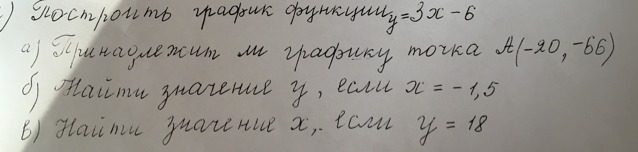 ) Построить график функции y=3x-6
а) Принадлежит ли графику точка A(-20,-66)
б) Найти значение y, если x = -1,5
в) Найти значение x, если y = 18